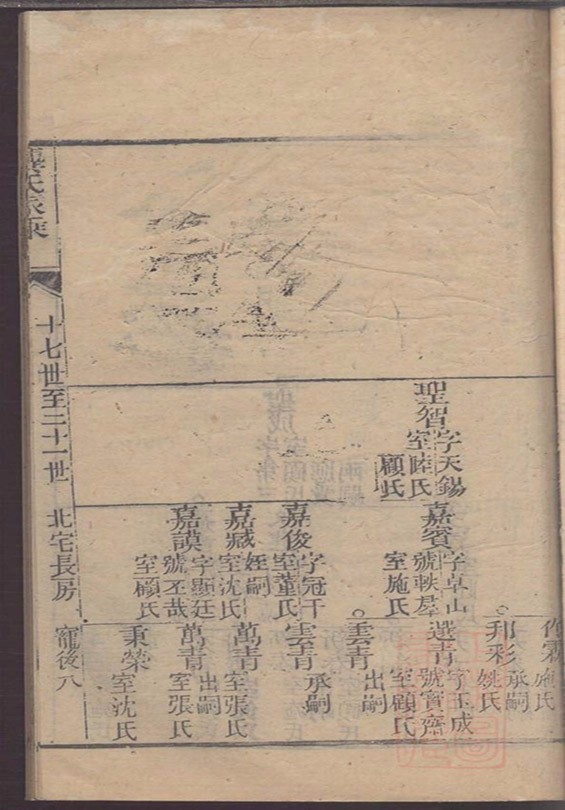 聖智
字天錫
室陸氏
顧氏
嘉賓
字卓山
號軼羣
室施氏
嘉俊
字冠千
室董氏
嘉臧
姪嗣
室沈氏
嘉謨
字顯廷
號丕哉
室顧氏
作霖
施氏
邦彩
承嗣
姚氏
選青
字玉成
號寶齋
室顧氏
雲青
出嗣
雲青
承嗣
萬青
出嗣
室張氏
萬青
室張氏
秉榮
室沈氏
氏家乘
十七世至二十一世
北宅長房
寵後八